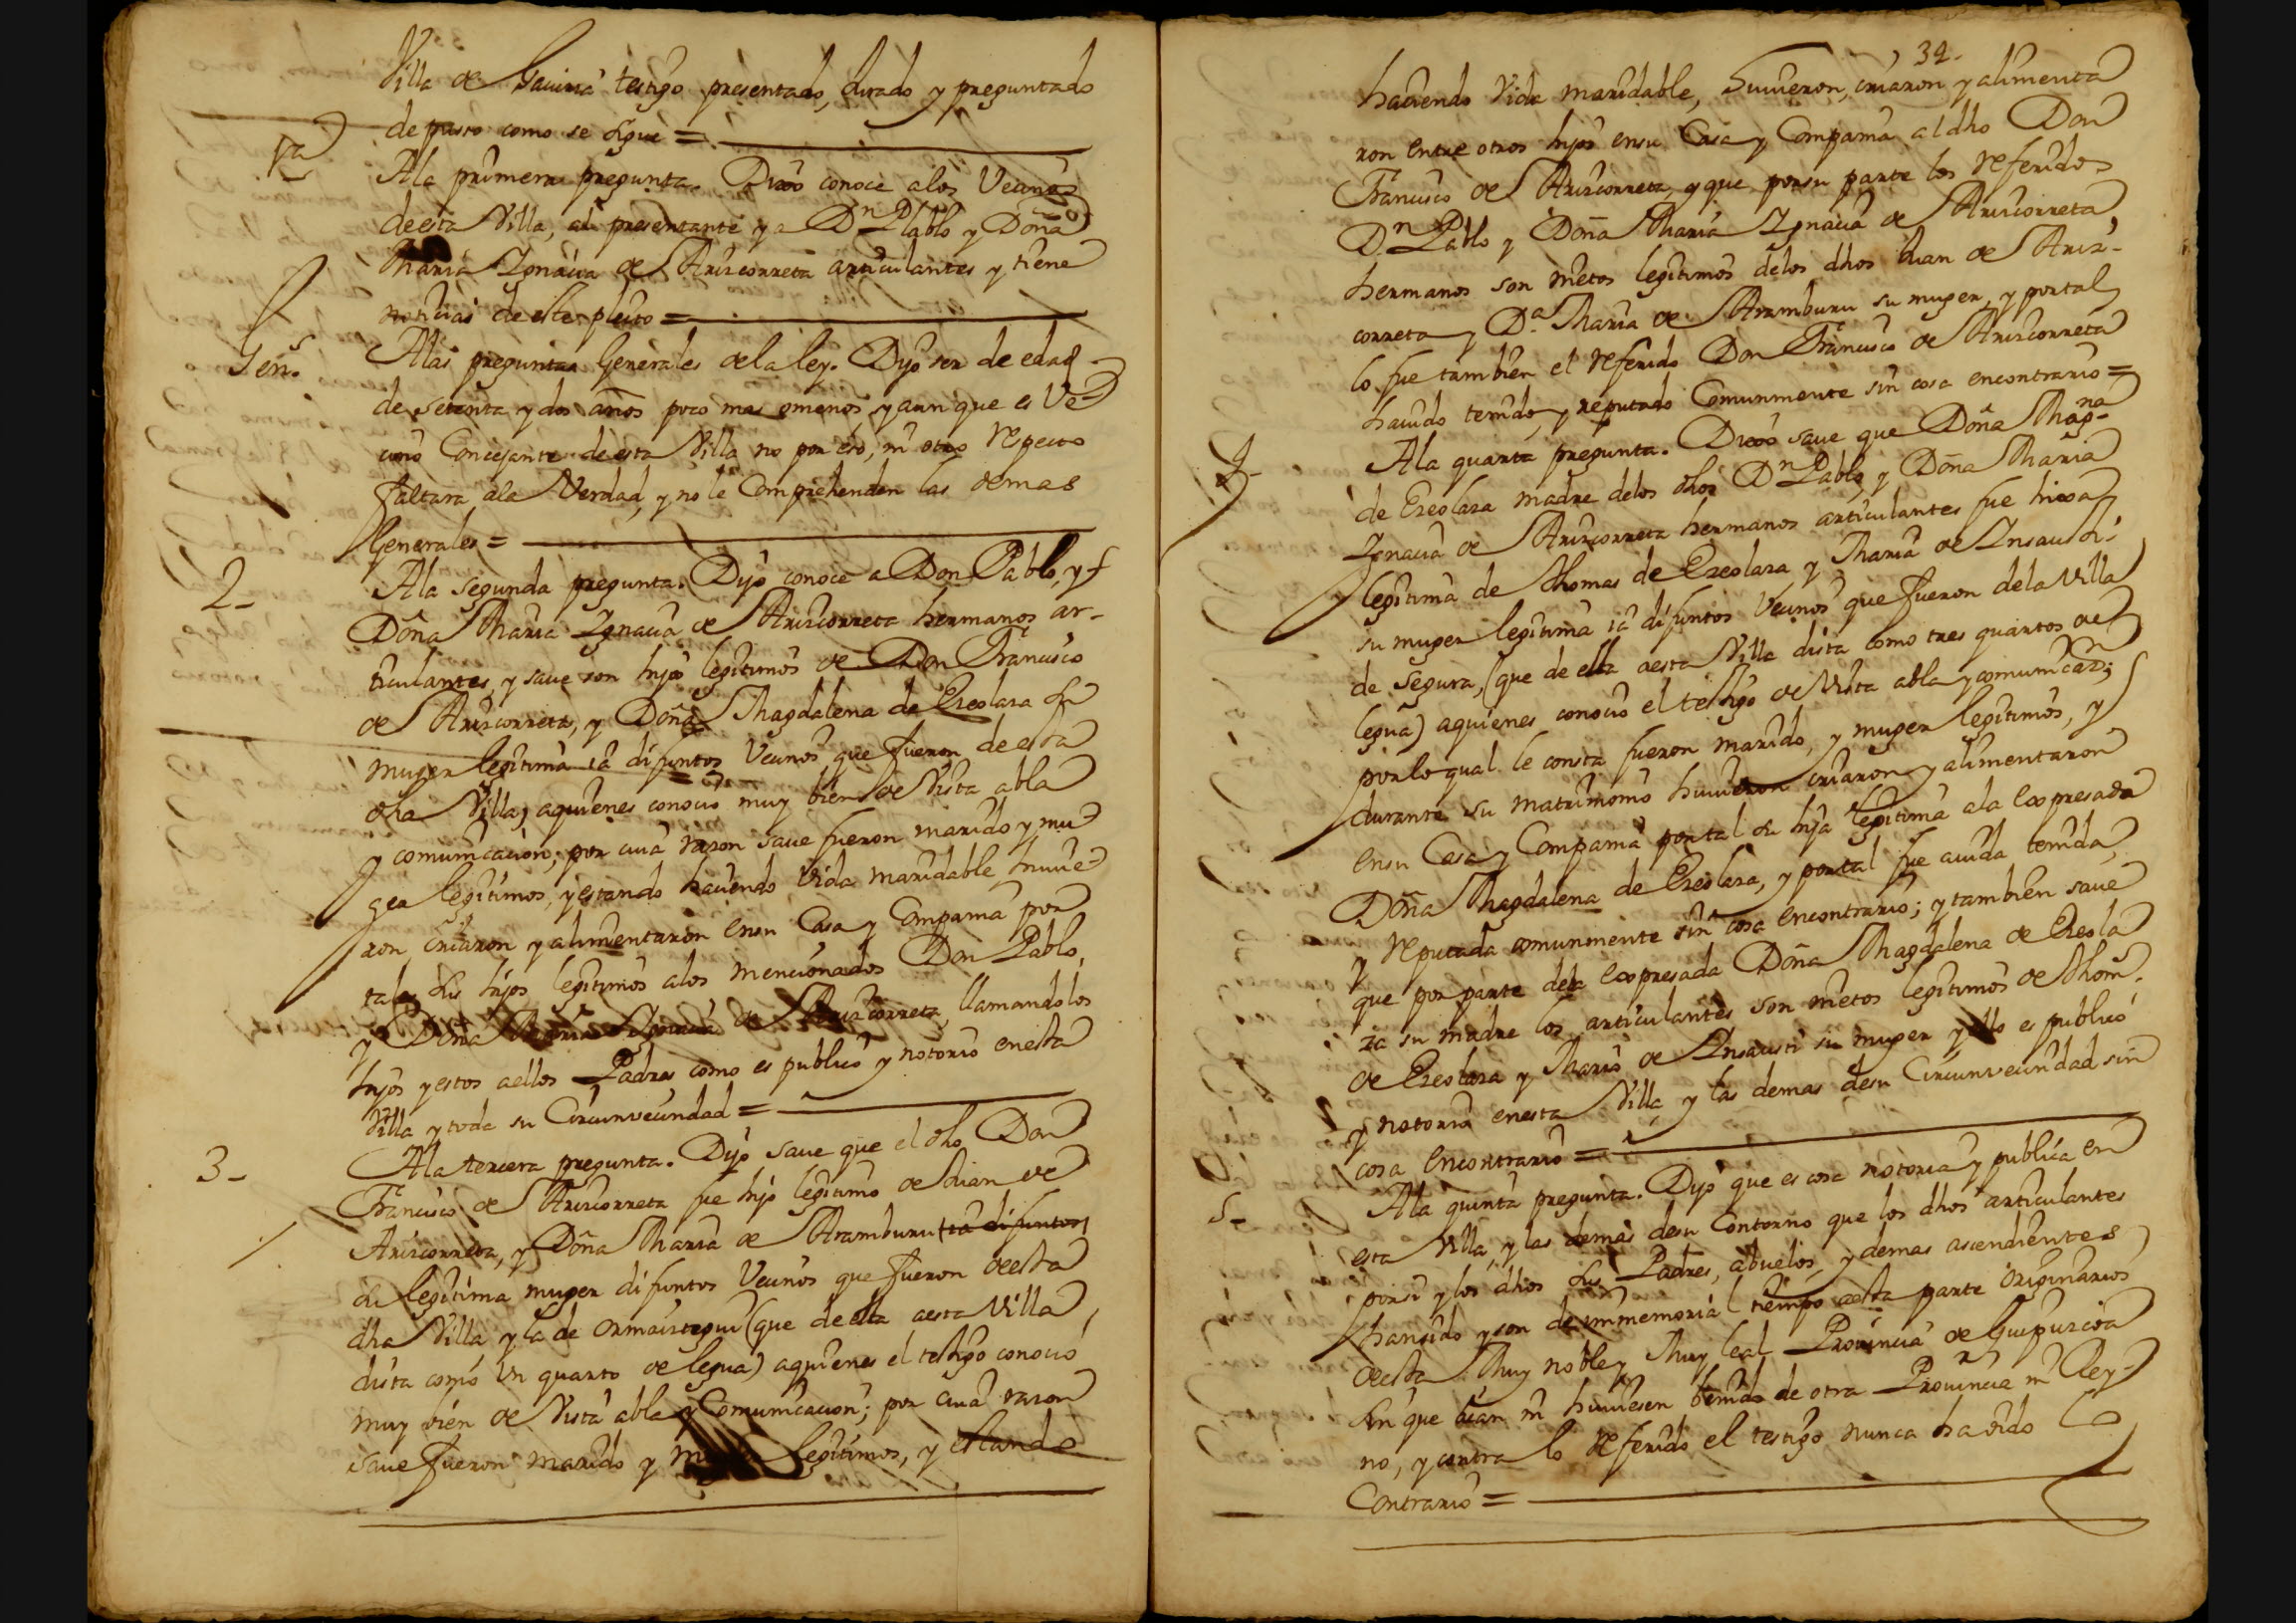 Villa de Gaviria testigo presentado, Jurado y preguntado
depuso como se sigue =
1a
Ala primera pregunta. Dixo conoce alos Vecinos
de esta Villa, al presentante y a Dn Pablo y Doña
Maria Ygnacia de Arizcorreta articulantes y tiene
noticias de este pleito =
Gens.
Alas preguntas Generales dela ley. Dijo ser de edad
de setenta y dos años poco mas omenos, y aun que es Ve-
cino Concejante de esta Villa no por eso, ni otro respecto
faltara ala Verdad, y no le Comprehenden las demas
Generales =
2-
Ala segunda pregunta. Dijo conoce a Don Pablo, y
Doña Maria Ygnacia de Arizcorreta hermanos ar-
ticulantes, y save son hijos legitimos de Don Francisco
de Arizcorreta, y Doña Magdalena de Ezeolaza su
muger legitima ia difuntos Vecinos que fueron de esta
dha Villa, aquienes conocio muy bien de Vista abla
y comunicacion; por cuia razon save fueron marido y mu-
ger legitimos, y estando haciendo Vida maridable huvie-
ron criaron y alimentaron ensu Casa y Compania por
tales sus hijos legitimos alos mencionados Don Pablo,
y Doña Maria Ygnacia de Arizcorreta, llamandolos
hijos y estos aellos Padres como es publico y notorio enesta
Villa y toda su Circunvecindad =
3-
Ala tercera pregunta. Dijo save que el dho Don
Francisco de Arizcorreta fue hijo legitimo de Juan de
Arizcorreta, y Doña Maria de Aramburu (ia difuntos)
su legitima muger difuntos Vecinos que fueron deesta
dha Villa, y la de Ormaiztegui (que de ella aesta Villa
dista como un quarto de legua) aquienes el testigo conocio
muy bien de Vista abla y Comunicacion; por cuia razon
save fueron marido y legitimos, y estando
34.
haciendo Vida maridable, huvieron, criaron y alimenta
ron entre otros hijos ensu Casa y Compania al dho Don
Francisco de Arizcorreta, y que porsu parte los referidos
Dn Pablo y Doña Maria Ygnacia de Arizcorreta
hermanos son nietos legitimos delos dhos Juan de Ariz-
correta y Da Maria de Aramburu su muger, y portal
lo fue tambien el referido Don Francisco de Arizcorreta
havido tenido, y reputado Comunmente sin cosa encontrario =
4-
Ala quarta pregunta. Dixo save que Doña Magna
de Ezeolaza madre delos dhos Dn Pablo, y Doña Maria
Ygnacia de Arizcorreta hermanos articulantes fue hixa
legitima de Thomas de Ezeolaza y Maria de Insausti
su muger legitima ia difuntos Vecinos que fueron dela Villa
de Segura, (que de ella aesta Villa dista como tres quartos de
legua) aquienes conocio el testigo de Vista abla y comunicazn;
porlo qual le consta fueron marido, y muger legitimos, y
durante su matrimonio huvieron criaron y alimentaron
ensu Casa y Compania portal su hija legitima ala expresada
Doña Magdalena de Ezeolaza, y portal fue avida tenida,
y reputada comunmente sin cosa encontrario; y tambien save
que por parte dela expresada Doña Magdalena de Ezeola
za su madre los articulantes son nietos legitimos de Thom.
de Ezeolaza y Maria de Insausti su muger y ello es publico
y notorio enesta Villa y las demas desu Circunvecindad sin
cosa encontrario =
5-
Ala quinta pregunta. Dijo que es cosa notoria y publica en
esta Villa, y las demas desu Contorno que los dhos articulantes
porsi y los dhos sus Padres, abuelos, y demas ascendientes
han sido y son de immemorial tiempo aesta parte Originarios
deesta Muy noble y Muy leal Provincia de Guipuzcoa
sin que aian ni huviesen benido de otra Provincia ni Rey-
no, y contra lo referido el testigo nunca ha oido
Contrario =